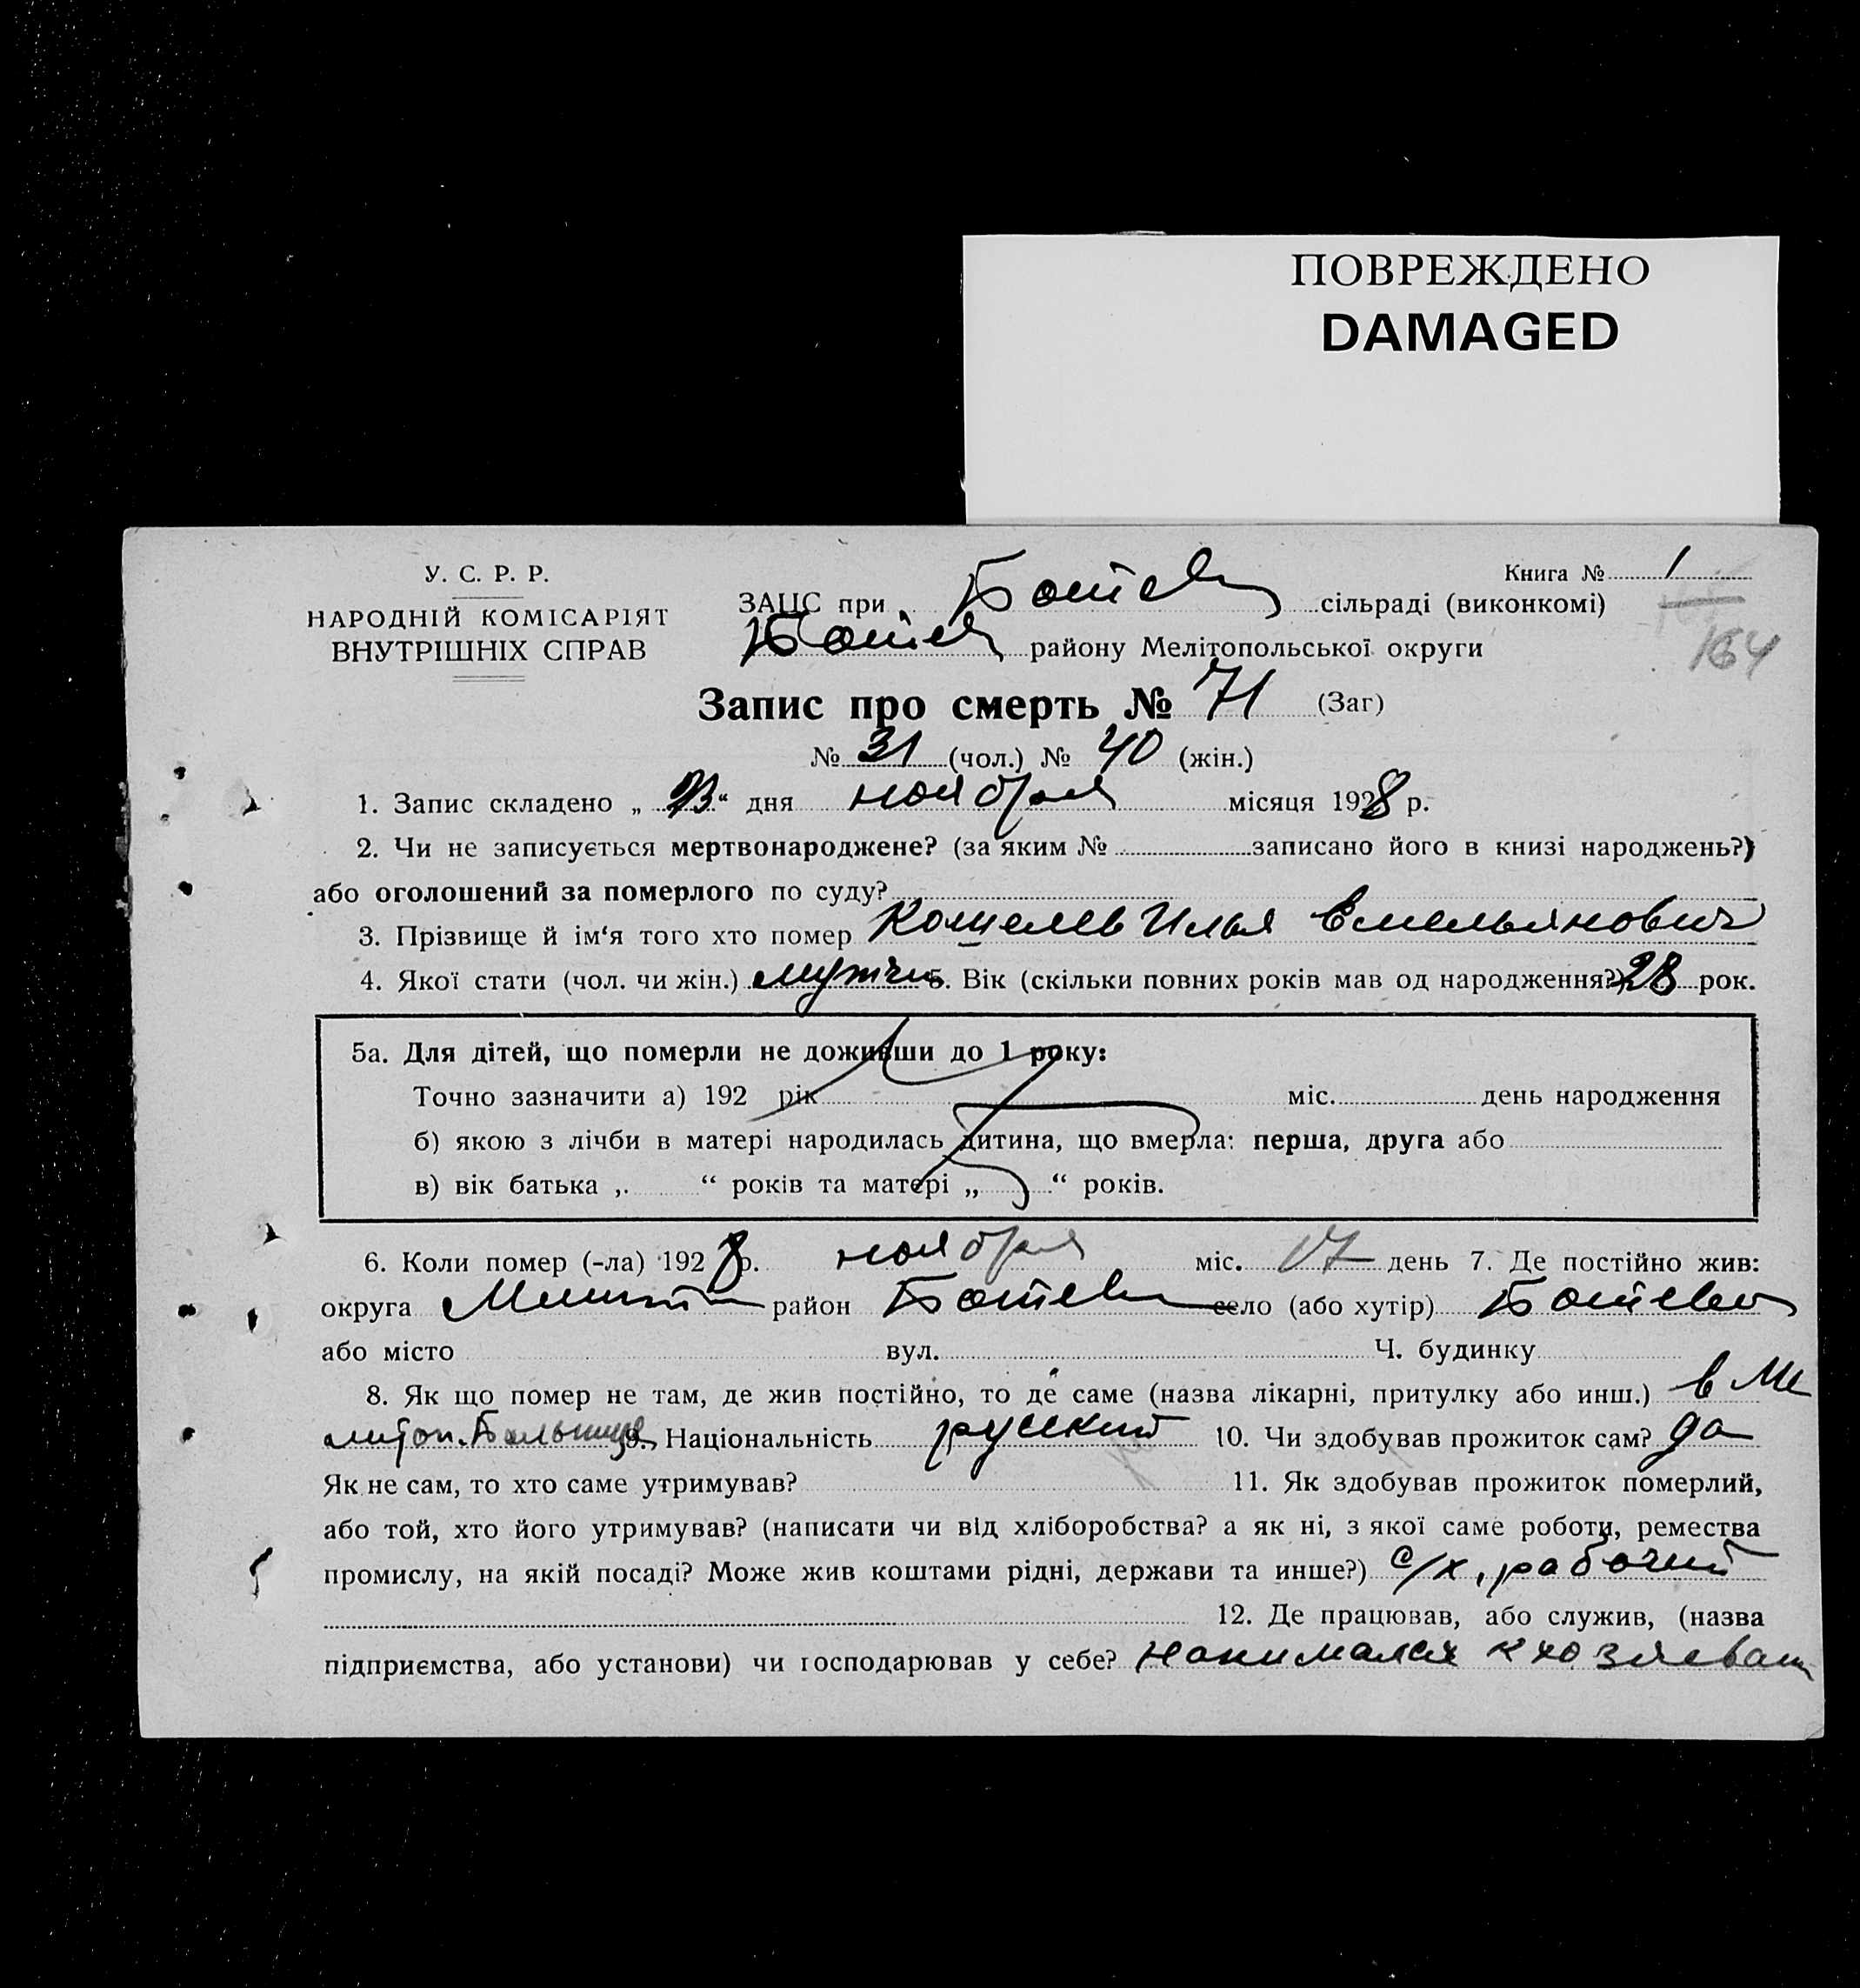 ПОВРЕЖДЕНО
DAMAGED
У. С. Р. Р.
НАРОДНІЙ КОМІСАРІЯТ
ВНУТРІШНІХ СПРАВ
Книга № 1
ЗАЦС при Ботіев сільраді (виконкомі)
Ботіев району Мелітопольської округи
164
Запис про смерть № 71 (Заг)
№ 31 (чол.) № 40 (жін.)
1. Запис складено „ 23 “ дня ноября місяця 1928 р.
2. Чи не записується мертвонароджене? (за яким № записано його в книзі народжень?)
або оголошений за померлого по суду?
3. Прізвище й ім‘я того хто помер Кошелев Илья Емельянович
4. Якої стати (чол. чи жін.) мужчи 5. Вік (скільки повних років мав од народження?) 28 рок.
5а. Для дітей, що померли не доживши до 1 року:
Точно зазначити а) 192 рік міс. день народження
б) якою з лічби в матері народилась дитина, що вмерла: перша, друга або
в) вік батька „ “ років та матері „ “ років.
6. Коли помер (-ла) 1928 р. ноября міс. 17 день 7. Де постійно жив:
округа район Ботіев село (або хутір) Ботіево
або місто вул. Ч. будинку
8. Як що помер не там, де жив постійно, то де саме (назва лікарні, притулку або инш.) в Ме
литоп. Больнице 9. Національність русский 10. Чи здобував прожиток сам? да
Як не сам, то хто саме утримував? 11. Як здобував прожиток померлий,
або той, хто його утримував? (написати чи від хліборобства? а як ні, з якої саме роботи, ремества
промислу, на якій посаді? Може жив коштами рідні, держави та инше?) с/х, рабочий
12. Де працював, або служив, (назва
підприємства, або установи) чи господарював у себе? нанимался к хозяевам